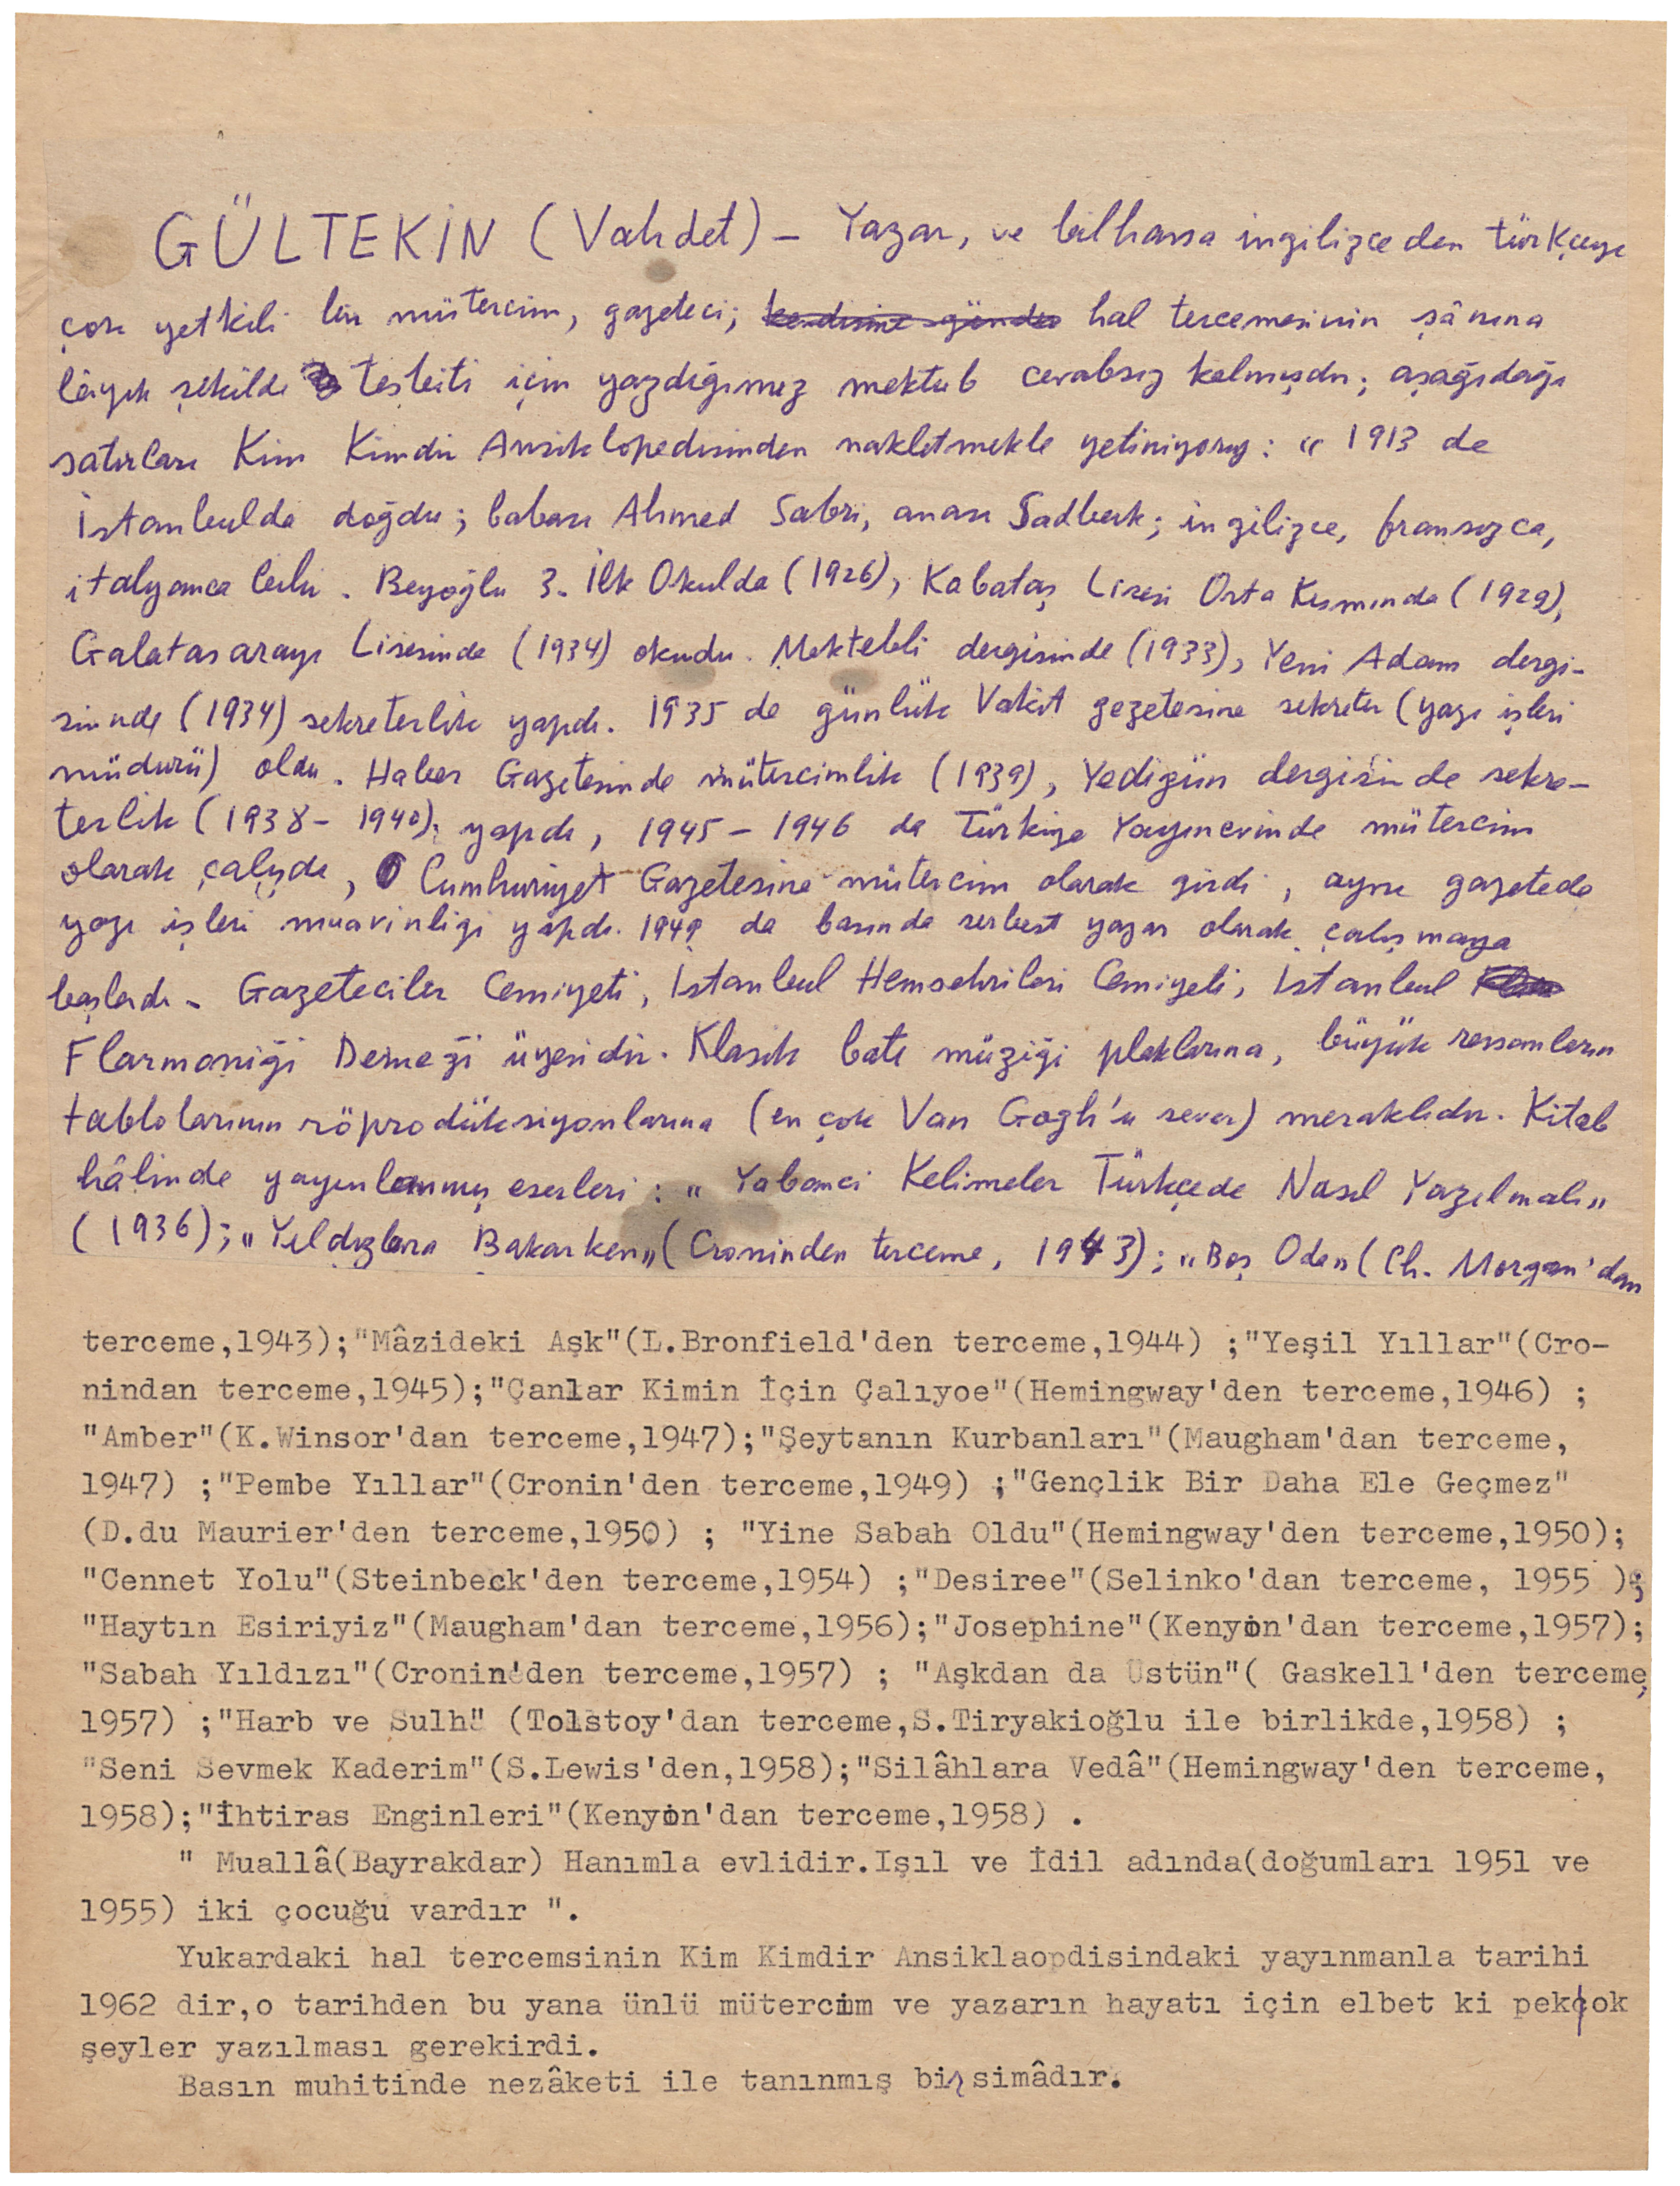 GÜLTEKİN (Vahdet) — Yazar, ve bilhassa ingilizceden türkçeye
çok yetkili bir mütercim, gazeteci; kendisine gönder hal tercemesinin şânına
lâyık şekilde tesbiti için yazdığımız mektub cevabsız kalmışdır; aşağıdağı
satırları Kim Kimdir Ansiklopedisinden nakletmekle yetiniyoruz: " 1913 de
İstanbulda doğdu; babası Ahmed Sabri, anası Sadberk; ingilizce, fransızca,
italyanca bilir. Beyoğlu 3. İlk Okulda (1926), Kabataş Lisesi Orta Kısmında (1929),
Galatasaray Lisesinde (1934) okudu. Mektebli dergisinde (1933), Yeni Adam dergi-
sinde (1934) sekreterlik yapdı. 1935 de günlük Vakit gezetesine sekreter (yazı işleri
müdürü) oldu. Haber Gazetesinde mütercimlik (1939), Yedigün dergisinde sekre-
terlik (1938 - 1940), yapdı, 1945 - 1946 da Türkiye Yayınevinde mütercim
olarak çalışdı, Cumhuriyet Gazetesine mütercim olarak girdi, aynı gazetede
yazı işleri muavinliği yapdı. 1949 da basında serbest yazar olarak çalışmaya
başladı - Gazeteciler Cemiyeti, İstanbul Hemşehrileri Cemiyeti, İstanbul
Flarmoniği Derneği üyesidir. Klasik batı müziği plaklarına, büyük ressamların
tablolarının röprodüksiyonlarına (en çok Van Gogh'u sever) meraklıdır. Kitab
hâlinde yayınlanmış eserleri : " Yabancı Kelimeler Türkçede Nasıl Yazılmalı"
(1936); "Yıldızlara Bakarken" (Croninden terceme, 1943); "Boş Oda" (Ch. Morgan'dan
terceme,1943);"Mâzideki Aşk"(L.Bronfield'den terceme,1944) ;"Yeşil Yıllar"(Cro-
nindan terceme,1945);"Çanlar Kimin İçin Çalıyoe"(Hemingway'den terceme,1946) ;
"Amber"(K.Winsor'dan terceme,1947);"Şeytanın Kurbanları"(Maugham'dan terceme,
1947) ;"Pembe Yıllar"(Cronin'den terceme,1949) ;"Gençlik Bir Daha Ele Geçmez"
(D.du Maurier'den terceme,1950) ; "Yine Sabah Oldu"(Hemingway'den terceme,1950);
"Cennet Yolu"(Steinbeck'den terceme,1954) ;"Desiree"(Selinko'dan terceme, 1955 );
"Haytın Esiriyiz"(Maugham'dan terceme,1956);"Josephine"(Kenyon'dan terceme,1957);
"Sabah Yıldızı"(Cronin'den terceme,1957) ; "Aşkdan da Üstün"( Gaskell'den terceme,
1957) ;"Harb ve Sulh" (Tolstoy'dan terceme,S.Tiryakioğlu ile birlikde,1958) ;
"Seni Sevmek Kaderim"(S.Lewis'den,1958);"Silâhlara Vedâ"(Hemingway'den terceme,
1958);"İhtiras Enginleri"(Kenyon'dan terceme,1958) .
" Muallâ(Bayrakdar) Hanımla evlidir.Işıl ve İdil adında(doğumları 1951 ve
1955) iki çocuğu vardır ".
Yukardaki hal tercemsinin Kim Kimdir Ansiklaopdisindaki yayınmanla tarihi
1962 dir,o tarihden bu yana ünlü mütercim ve yazarın hayatı için elbet ki pek çok
şeyler yazılması gerekirdi.
Basın muhitinde nezâketi ile tanınmış bir simâdır.